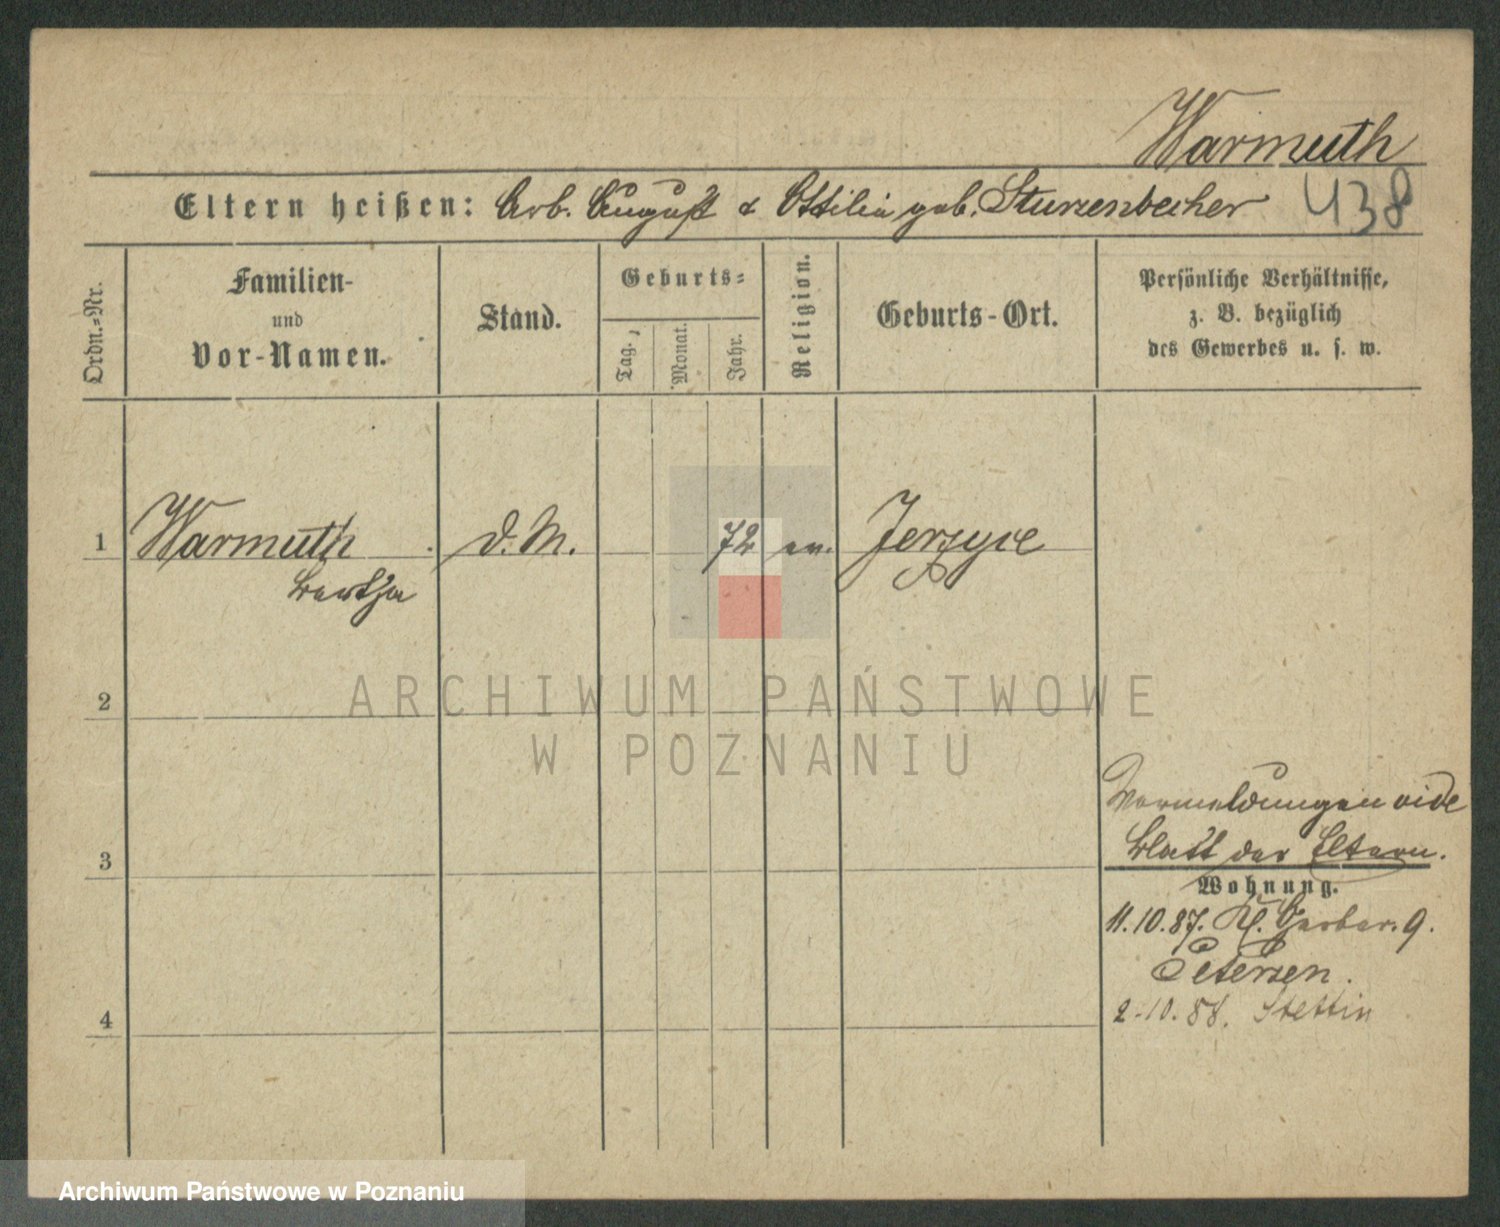 Warmuth
Eltern heißen: Arb. August & Ottilie geb. Sturzenbecher
438
Ordn.-Nr.
Familien-
und
Vor-Namen.
Stand.
Geburts-
Tag.
Monat.
Jahr.
Religion.
Geburts-Ort.
Persönliche Verhältnisse,
z. B. bezüglich
des Gewerbes u. s. w.
1 Warmuth D. M. 72 ev. Jerzyce
Bertha
2
ARCHIWUM PAŃSTWOWE
W POZNANIU
Vormeldungen vide
3 Blatt der Eltern.
Wohnung.
11.10.87. Kl. Gerber. 9.
Petersen.
4 2.10.88. Stettin
Archiwum Państwowe w Poznaniu